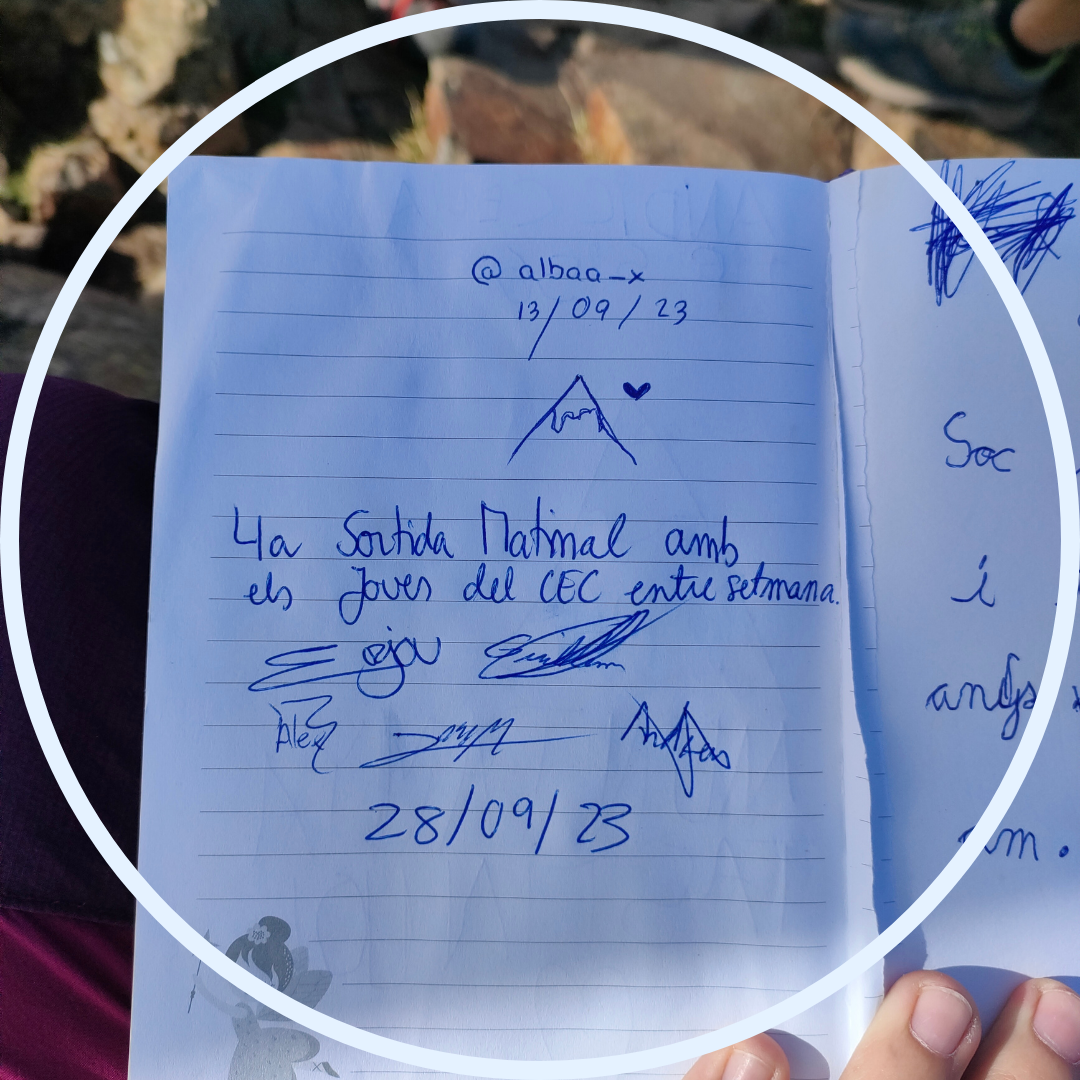 @ albaa_x
13/09/23
4a Sortida Matinal amb
els joves del CEC entre setmana.
Alex
28/09/23
Soc
i
anys
am.